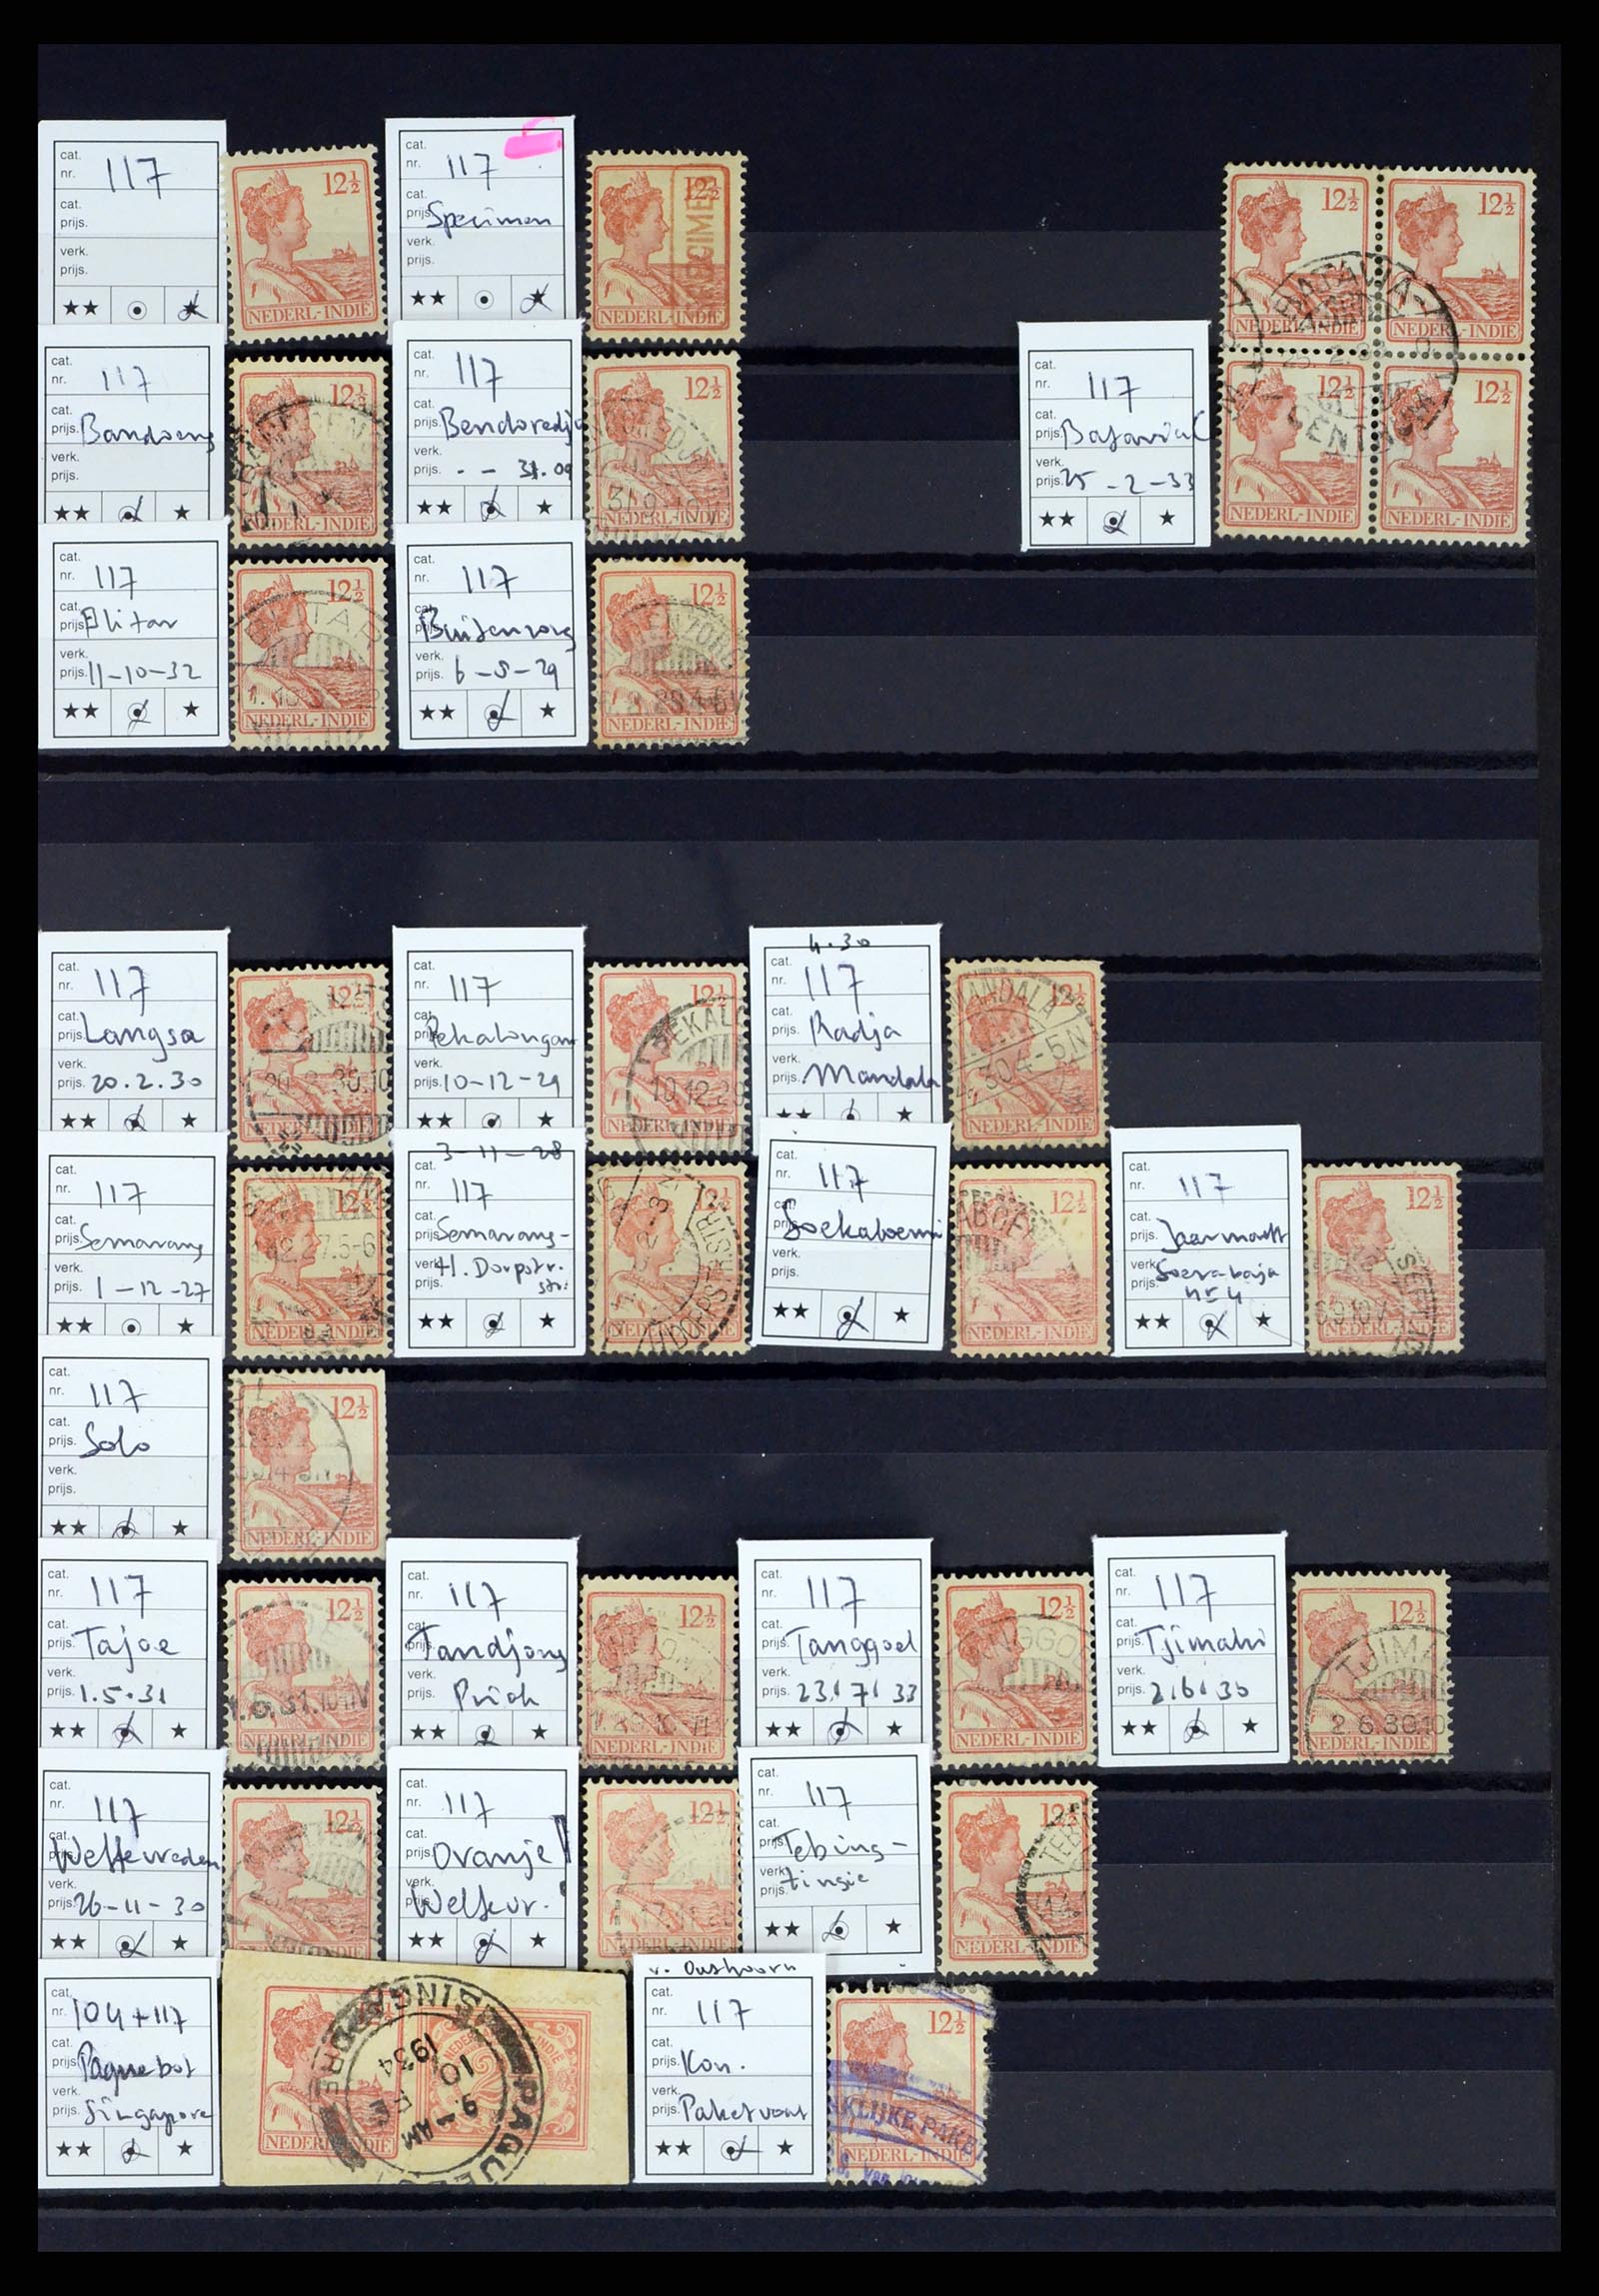 cat.
nr. 117
cat.
prijs.
verk.
prijs.
★★ ★
12½
NEDERL-INDIE
cat.
nr. 117
cat.
prijs. Specimen
verk.
prijs.
★★ ★
12½
SPECIMEN
NEDERL-INDIE
12½
12½
NEDERL-INDIE
NEDERL-INDIE
12½
12½
NEDERL-INDIE
NEDERL-INDIE
BATAVIA-
CENTRUM
cat.
nr. 117
cat.
prijs. Batavia C
verk.
prijs. 25-2-33
★★ ★
cat.
nr. 117
cat.
prijs. Bandoeng
verk.
prijs.
★★ ★
12½
NEDERL-INDIE
cat.
nr. 117
cat.
prijs. Bendoredjo
verk.
prijs. - - 31.09
★★ ★
12½
NEDERL-INDIE
cat.
nr. 117
cat.
prijs. Blitar
verk.
prijs. 11-10-32
★★ ★
12½
BLITAR
NEDERL-INDIE
cat.
nr. 117
cat.
prijs. Buitenzorg
verk.
prijs. 6-8-29
★★ ★
12½
NEDERL-INDIE
cat.
nr. 117
cat.
prijs. Langsa
verk.
prijs. 20.2.30
★★ ★
12½
NEDERL-INDIE
cat.
nr. 117
cat.
prijs. Pekalongan
verk.
prijs. 10-12-29
★★ ★
12½
PEKALO
10.12.29
NEDERL-INDIE
4.30
cat.
nr. 117
cat.
prijs. Radja
verk.
prijs. Mandala
★★ ★
12½
MANDALA
.304-5N
NEDERL-INDIE
cat.
nr. 117
cat.
prijs. Semarang
verk.
prijs. 1-12-27
★★ ★
12½
NEDERL-INDIE
3-11-28
cat.
nr. 117
cat.
prijs. Semarang-
verk. H. Dorpstr.
prijs. str.
★★ ★
12½
DORPSTR
cat.
nr. 117
cat.
prijs. Soekaboemi
verk.
prijs.
★★ ★
12½
ABOEM
NEDERL-INDIE
cat.
nr. 117
cat.
prijs. Jaarmarkt
verk. Soerabaja
prijs. nr 4
★★ ★
12½
6.9.10V
SEPT
NEDERL-INDIE
cat.
nr. 117
cat.
prijs. Solo
verk.
prijs.
★★ ★
12½
NEDERL-INDIE
cat.
nr. 117
cat.
prijs. Tajoe
verk.
prijs. 1.5.31
★★ ★
12½
NEDERL-INDIE
cat.
nr. 117
cat.
prijs. Tandjong
verk.
prijs. Priok
★★ ★
12½
NEDERL-INDIE
cat.
nr. 117
cat.
prijs. Tanggoel
verk.
prijs. 23/7/33
★★ ★
12½
NGGOE
NEDERL-INDIE
cat.
nr. 117
cat.
prijs. Tjimahi
verk.
prijs. 2/6/30
★★ ★
12½
TJIMA
2.6.30.10
NEDERL-INDIE
cat.
nr. 117
cat.
prijs. Weltevreden
verk.
prijs. 26-11-30
★★ ★
12½
NEDERL-INDIE
cat.
nr. 117
cat.
prijs. Oranje
verk.
prijs. Weltevr.
★★ ★
12½
NEDERL-INDIE
cat.
nr. 117
cat.
prijs. Tebing-
verk. tingie
prijs.
★★ ★
12½
TEB
NEDERL-INDIE
cat.
nr. 104+117
cat.
prijs. Paquebot
verk.
prijs. Singapore
★★ ★
SINGAPORE
PAQUEBOT
9-AM
10
1934
NEDERL-INDIE
v. Oushoorn
cat.
nr. 117
cat.
prijs. Kon.
verk.
prijs. Paketvaart
★★ ★
12½
KLIJKE PAKE
NEDERL-INDIE